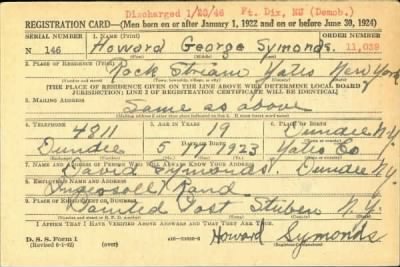 Discharged 1/23/46 Ft. Dix, NJ (Demob.)
REGISTRATION CARD—(Men born on or after January 1, 1922 and on or before June 30, 1924)
SERIAL NUMBER 1. NAME (Print) ORDER NUMBER
N 146 Howard George Symonds 11,039
2. PLACE OF RESIDENCE (Print)
Rock Stream Yates New York
[THE PLACE OF RESIDENCE GIVEN ON THE LINE ABOVE WILL DETERMINE LOCAL BOARD JURISDICTION; LINE 2 OF REGISTRATION CERTIFICATE WILL BE IDENTICAL]
3. MAILING ADDRESS
Same as above
4. TELEPHONE 5. AGE IN YEARS 6. PLACE OF BIRTH
4811 19 Dundee N.Y.
Dundee 5 1923 Yates Co
7. NAME AND ADDRESS OF PERSON WHO WILL ALWAYS KNOW YOUR ADDRESS
David Symonds. Dundee N.Y.
8. EMPLOYER'S NAME AND ADDRESS
Ingersoll Rand
9. PLACE OF EMPLOYMENT OR BUSINESS
Painted Post Steuben N.Y.
I AFFIRM THAT I HAVE VERIFIED ABOVE ANSWERS AND THAT THEY ARE TRUE.
D. S. S. Form 1
Howard Symonds